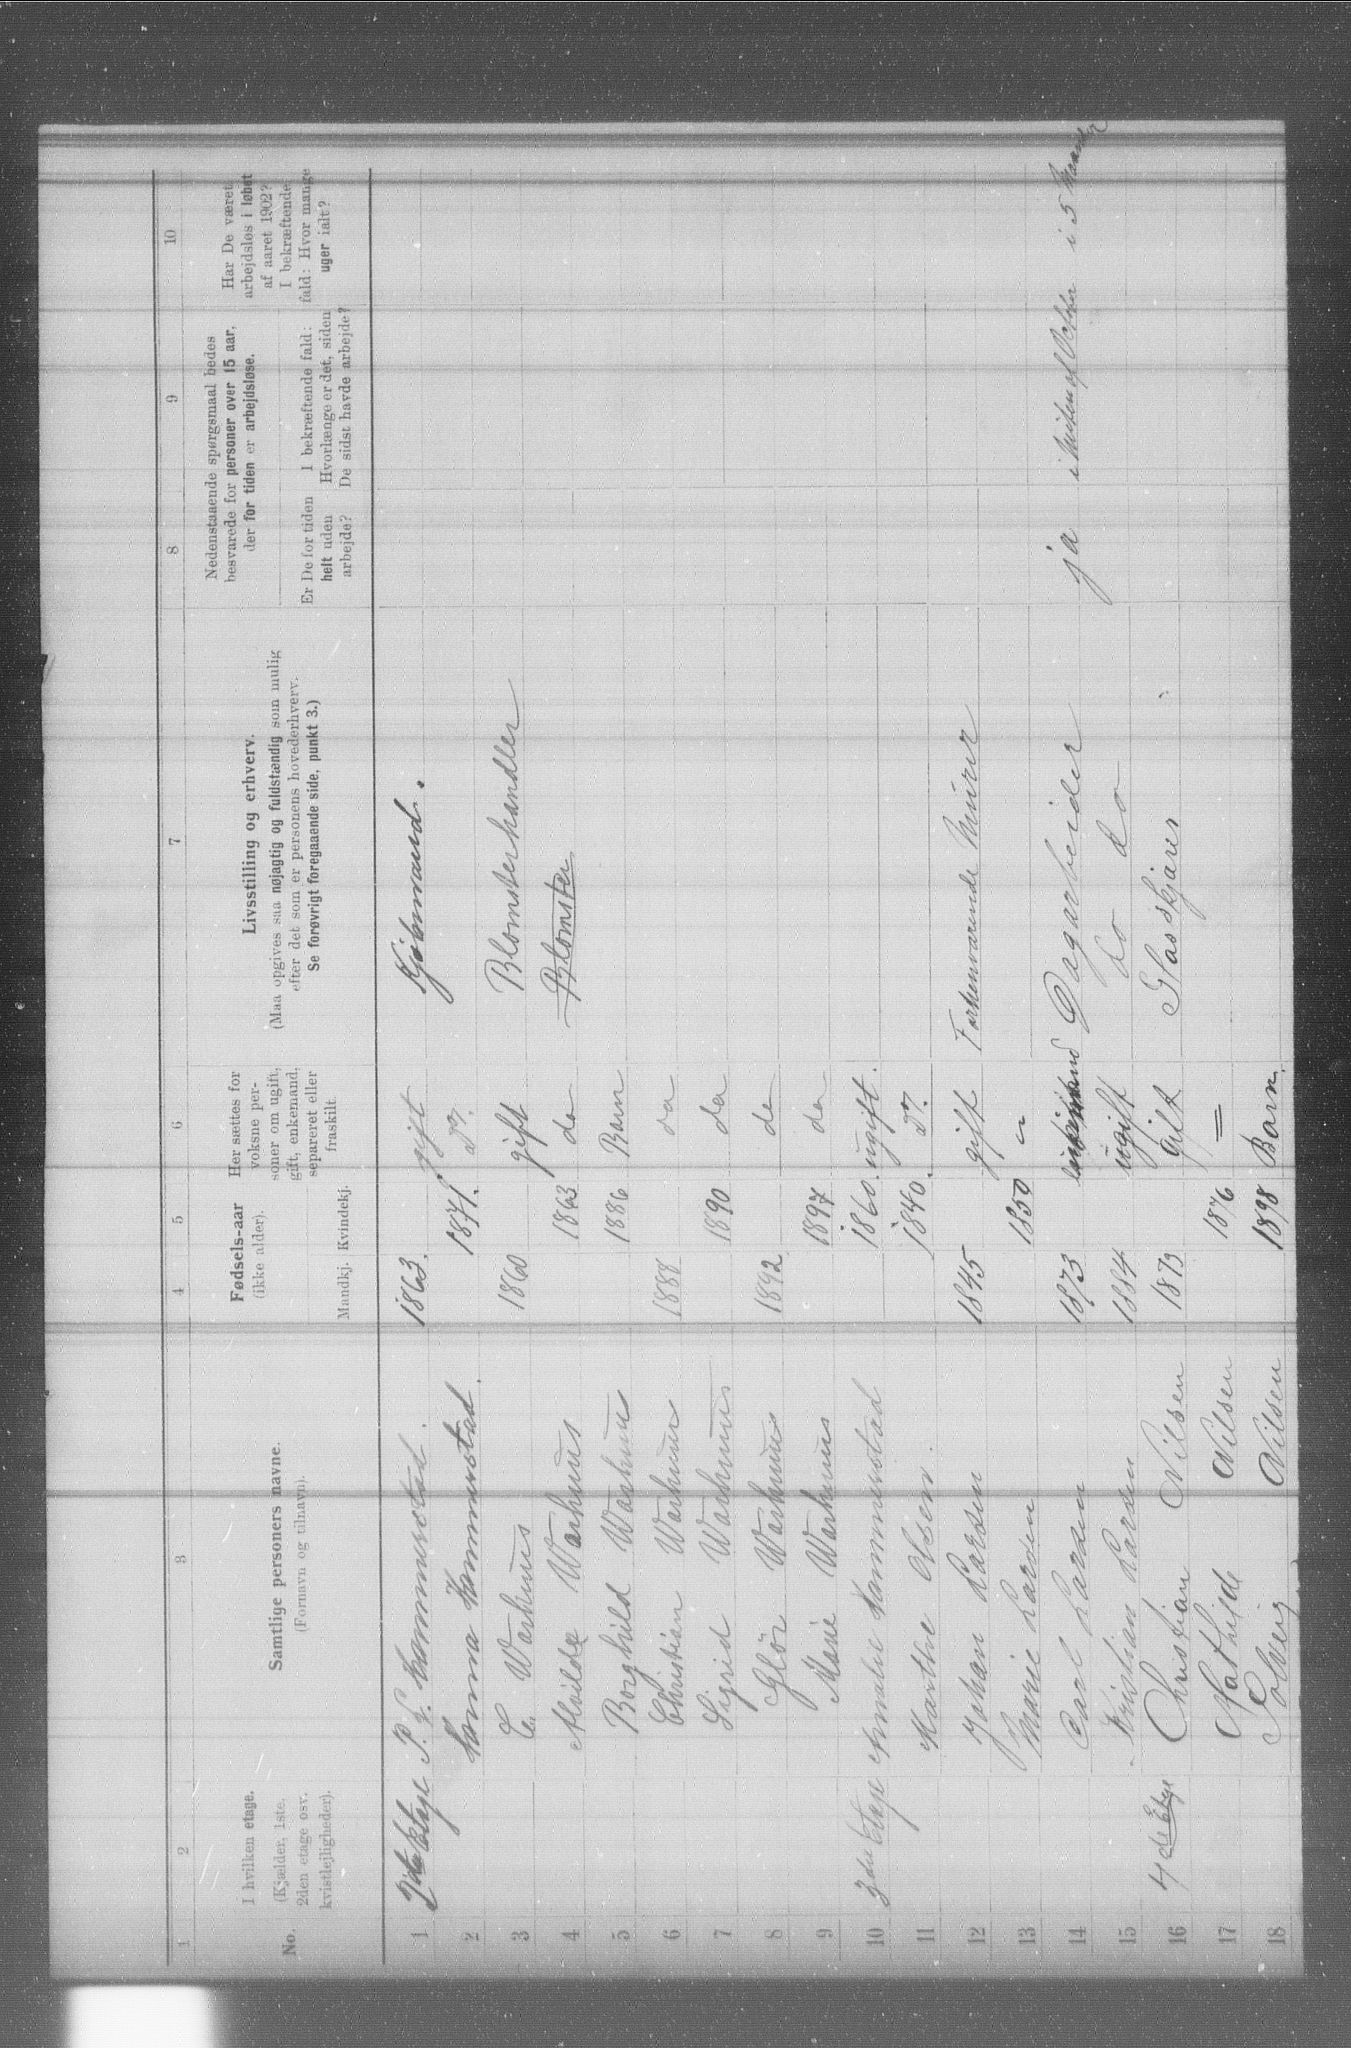 1 2 3 4 5 6 7 8 9 10
No.
I hvilken etage.
(Kjælder, 1ste.
2den etage osv.
kvistlejligheder).
Samtlige personers navne.
(Fornavn og tilnavn).
Fødsels-aar
(ikke alder).
Mandkj. Kvindekj.
Her sættes for
voksne per-
soner om ugift,
gift, enkemand,
separeret eller
fraskilt.
Livsstilling og erhverv.
(Maa opgives saa nøjagtig og fuldstændig som mulig
efter det som er personens hovederhverv.
Se forøvrigt foregaaende side, punkt 3.)
Nedenstaaende spørgsmaal bedes
besvarede for personer over 15 aar,
der for tiden er arbejdsløse.
Er De for tiden
helt uden
arbejde?
I bekræftende fald:
Hvorlænge er det, siden
De sidst havde arbejde?
Har De været
arbejdsløs i løbet
af aaret 1902?
I bekræftende
fald: Hvor mange
uger ialt?
1 Etage P. Hammerstad. 1863. gift Kjøbmand.
2 Hanna Hammerstad. 1871. do.
3 C. Warhuus 1860 gift Blomsterhandler
4 Warhuus 1863 do Blomster
5 Borghild Warhuus 1886 Barn
6 Christian Warhuus 1888 do
7 Sigrid Warhuus 1890 do
8 Warhuus 1892 do
9 Marie Warhuus 1897 do
10 3die Etage Amalie Hammerstad 1860. ugift.
11 Marthe Olsen. 1840. do.
12 Johan Larsen 1845 gift Forhenværende Murer
13 Marie Larsen 1850 "
14 Carl Larsen 1873 Dagarbeider ja i Midten af October i 5 Maaneder
15 Kristian Larsen 1884 ugift do do
16 4de Etage Christian Nilsen 1873 Gift Glasskjærer
17 Mathilde Nilsen 1876 =
18 Solveig Nilsen 1898 Barn.